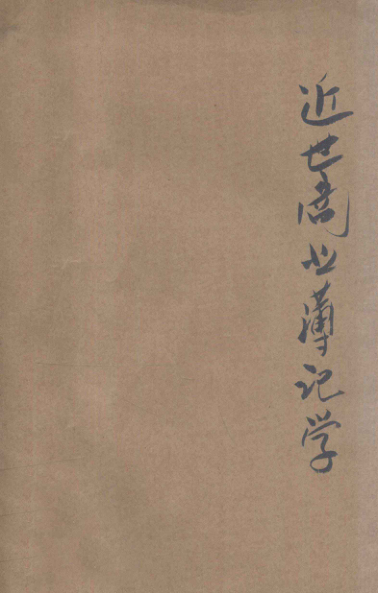 近世商业薄记学